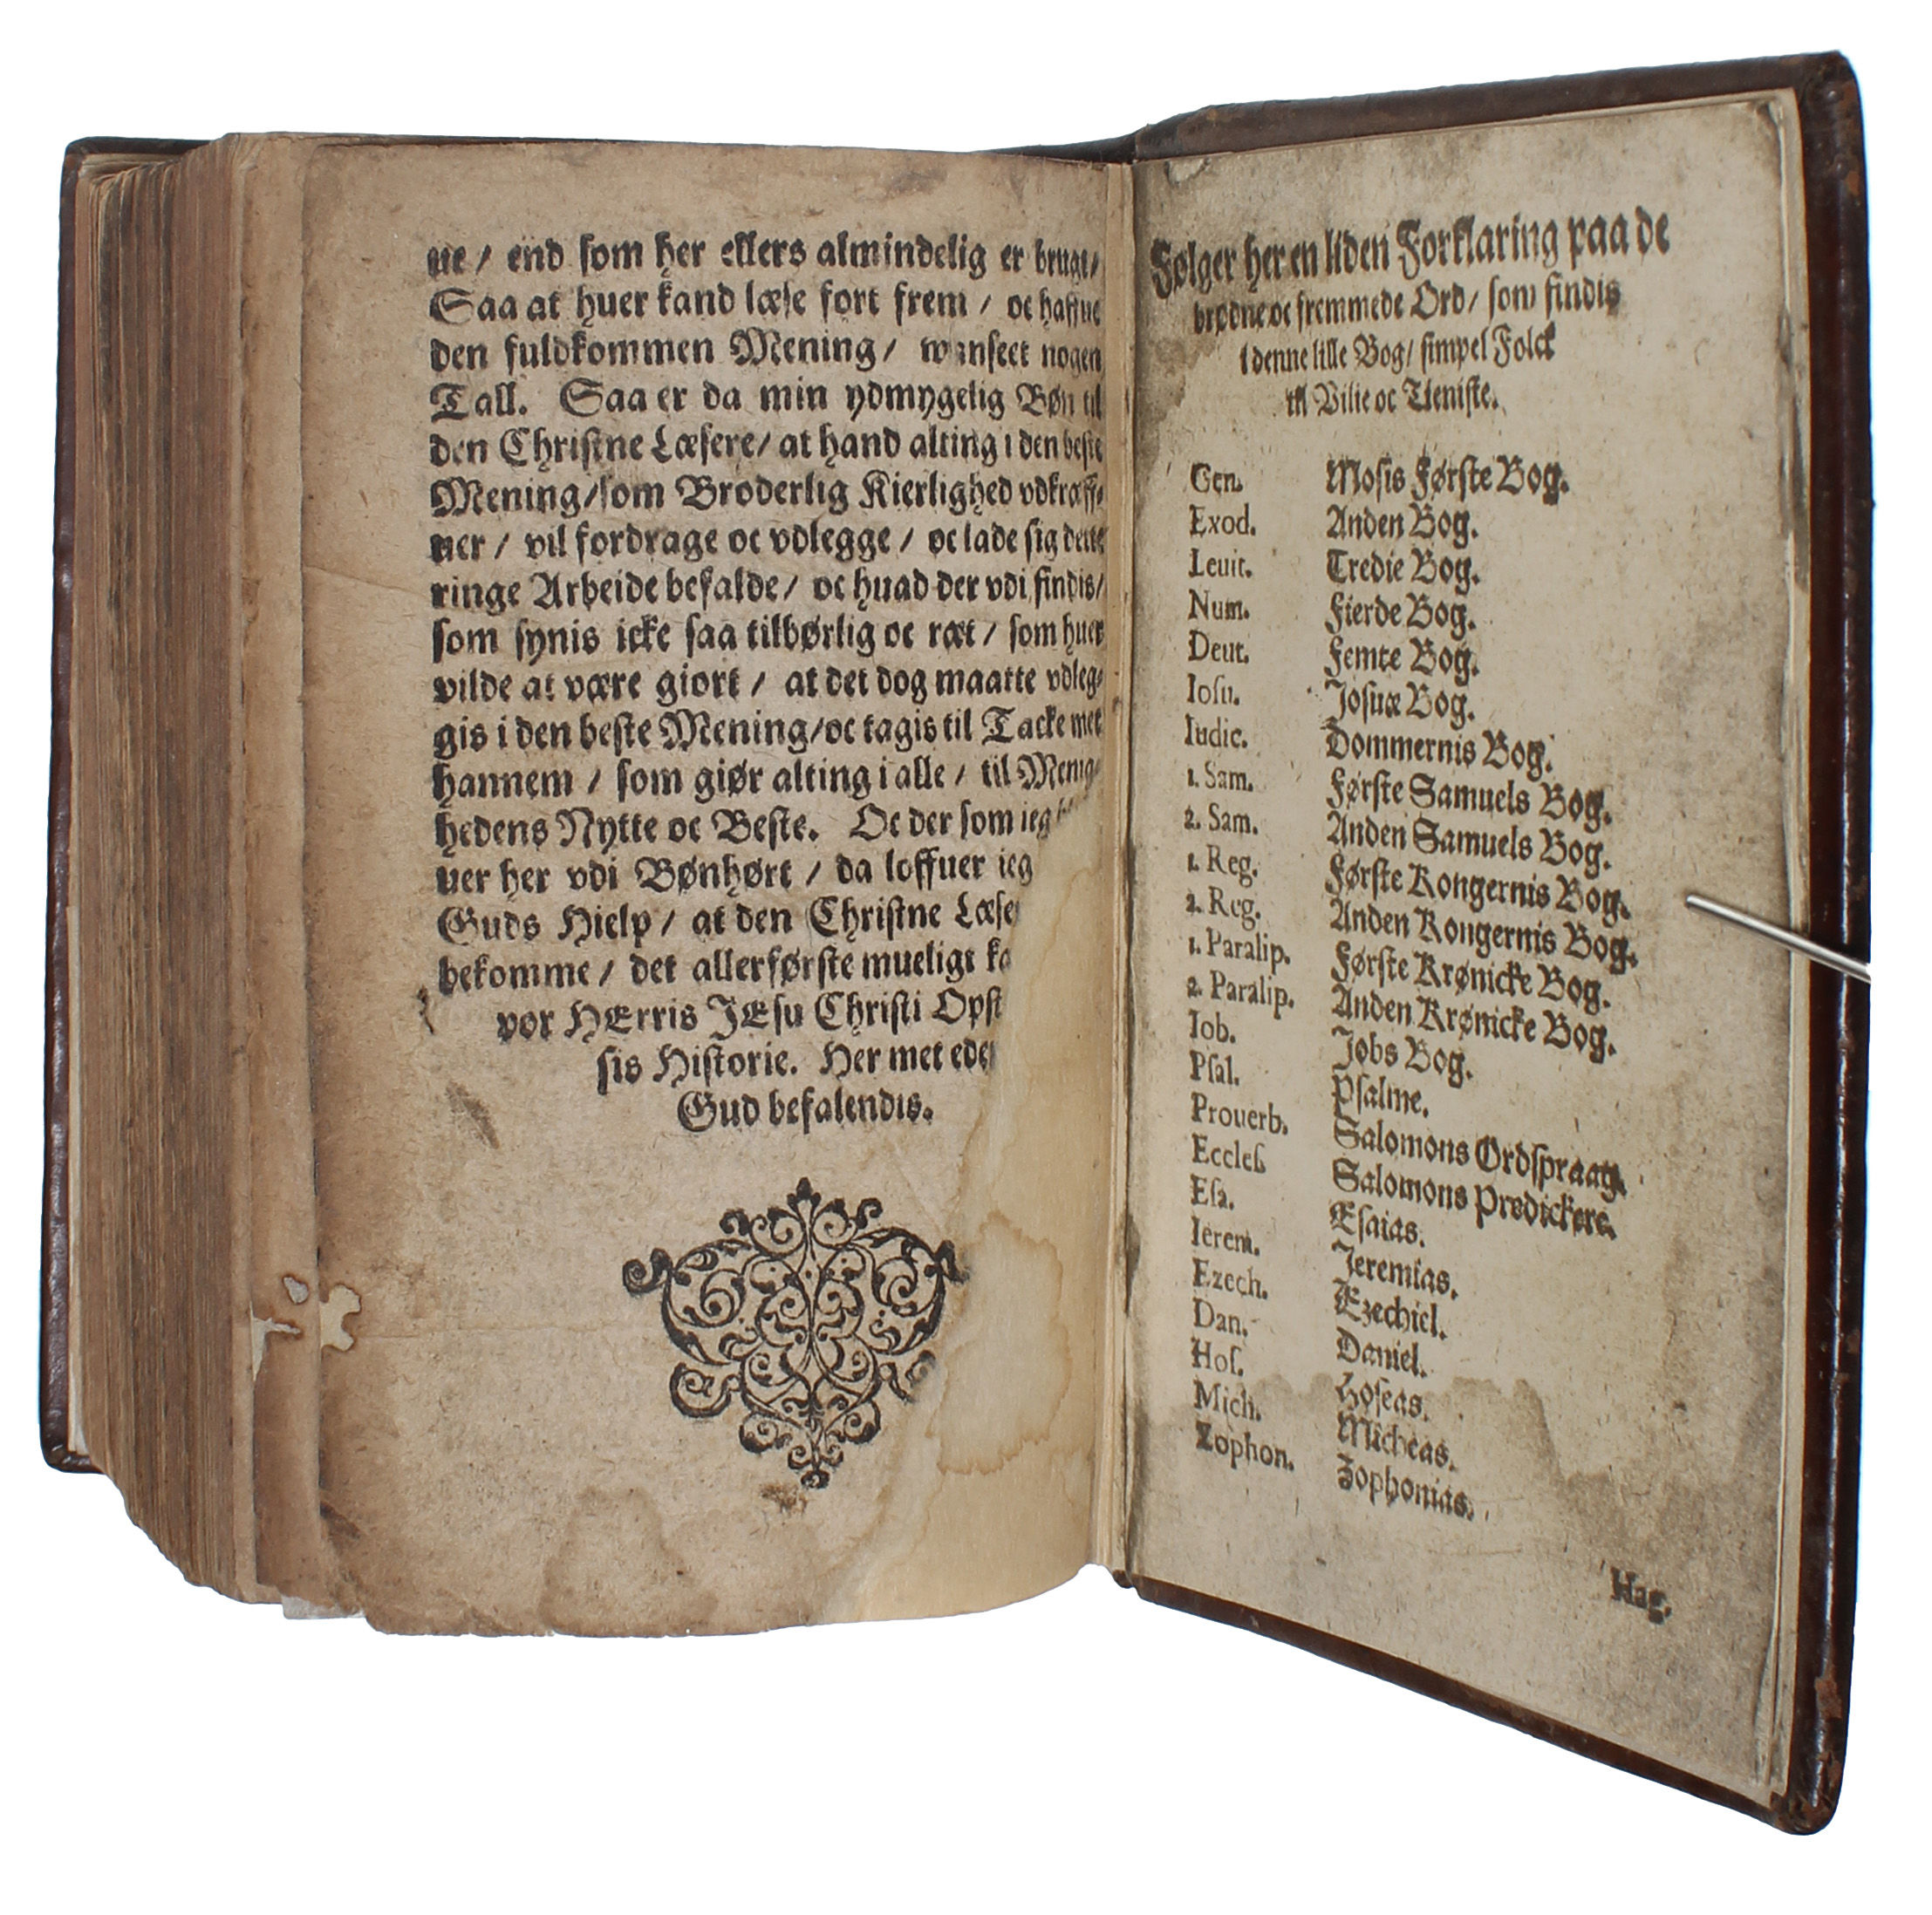 ne / end som her ellers almindelig er brugt/
Saa at huer kand læse fort frem / oc haffue
den fuldkommen Mening / wanseet nogen
Tall. Saa er da min ydmygelig Bøn til
den Christne Læsere/ at hand alting i den beste
Mening/som Broderlig Kierlighed vdkræff-
ner / vil fordrage oc vdlegge / oc lade sig dette
ringe Arbeide befalde / oc huad der vdi findis/
som synis icke saa tilbørlig oc ræt / som huer
vilde at være giort / at det dog maatte vdleg-
gis i den beste Mening/oc tagis til Tacke met
hannem / som giør alting i alle / til Menig-
hedens Nytte oc Beste. Oc der som ieg
uer her vdi Bønhørt / da loffuer ieg
Guds Hielp / at den Christne Læse
bekomme / det allerførste mueligt ka
vor HErris JEsu Christi Opst
sis Historie. Her met eder
Gud befalendis.
Følger her en liden Forklaring paa de
brødne oc fremmede Ord/ som findis
i denne lille Bog/ simpel Folck
til Vilie oc Tieniste.
Gen. Mosis Første Bog.
Exod. Anden Bog.
Leuit. Tredie Bog.
Num. Fierde Bog.
Deut. Femte Bog.
Iosu. Josuæ Bog.
Iudic. Dommernis Bog.
1. Sam. Første Samuels Bog.
2. Sam. Anden Samuels Bog.
1. Reg. Første Kongernis Bog.
2. Reg. Anden Kongernis Bog.
1. Paralip. Første Krønicke Bog.
2. Paralip. Anden Krønicke Bog.
Iob. Jobs Bog.
Psal. Psalme.
Prouerb. Salomons Ordspraag.
Eccles. Salomons Predickere.
Esa. Esaias.
Ierem. Jeremias.
Ezech. Ezechiel.
Dan. Daniel.
Hos. Hoseas.
Mich. Micheas.
Zophon. Zophonias.
Hag.